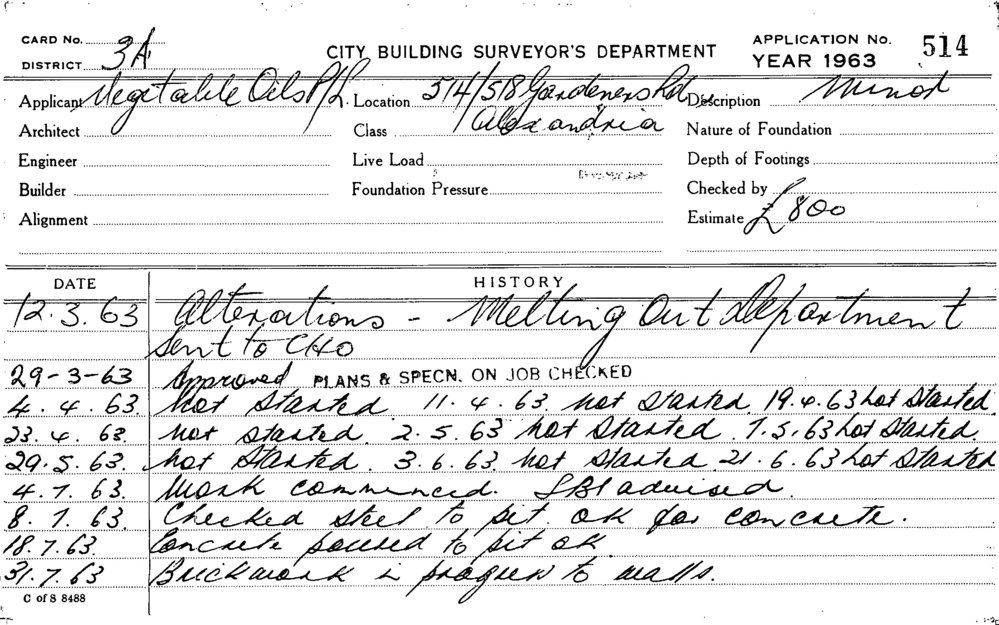 CARD No.
DISTRICT 3A
CITY BUILDING SURVEYOR'S DEPARTMENT
APPLICATION No. 514
YEAR 1963
Applicant Vegetable Oils P/L. Location 514/518 Gardeners Rd Description Minor
Architect Class Alexandria Nature of Foundation
Engineer Live Load Depth of Footings
Builder Foundation Pressure Checked by
Alignment Estimate £800
DATE HISTORY
12.3.63 Alterations - Melting Out Department
Sent to CHO
29-3-63 Approved PLANS & SPECN. ON JOB CHECKED
4.4.63. Not Started 11.4.63. not Started. 19.4.63 not Started.
23.4.63. not Started. 2.5.63 not Started. 7.5.63 not Started.
29.5.63. not Started. 3.6.63. not Started. 21.6.63 not Started
4.7.63. Work commenced. SBI advised.
8.7.63. Checked steel to pit ok for concrete.
18.7.63. Concrete poured to pit ok
31.7.63 Brickwork in progress to walls.
C of S 8488